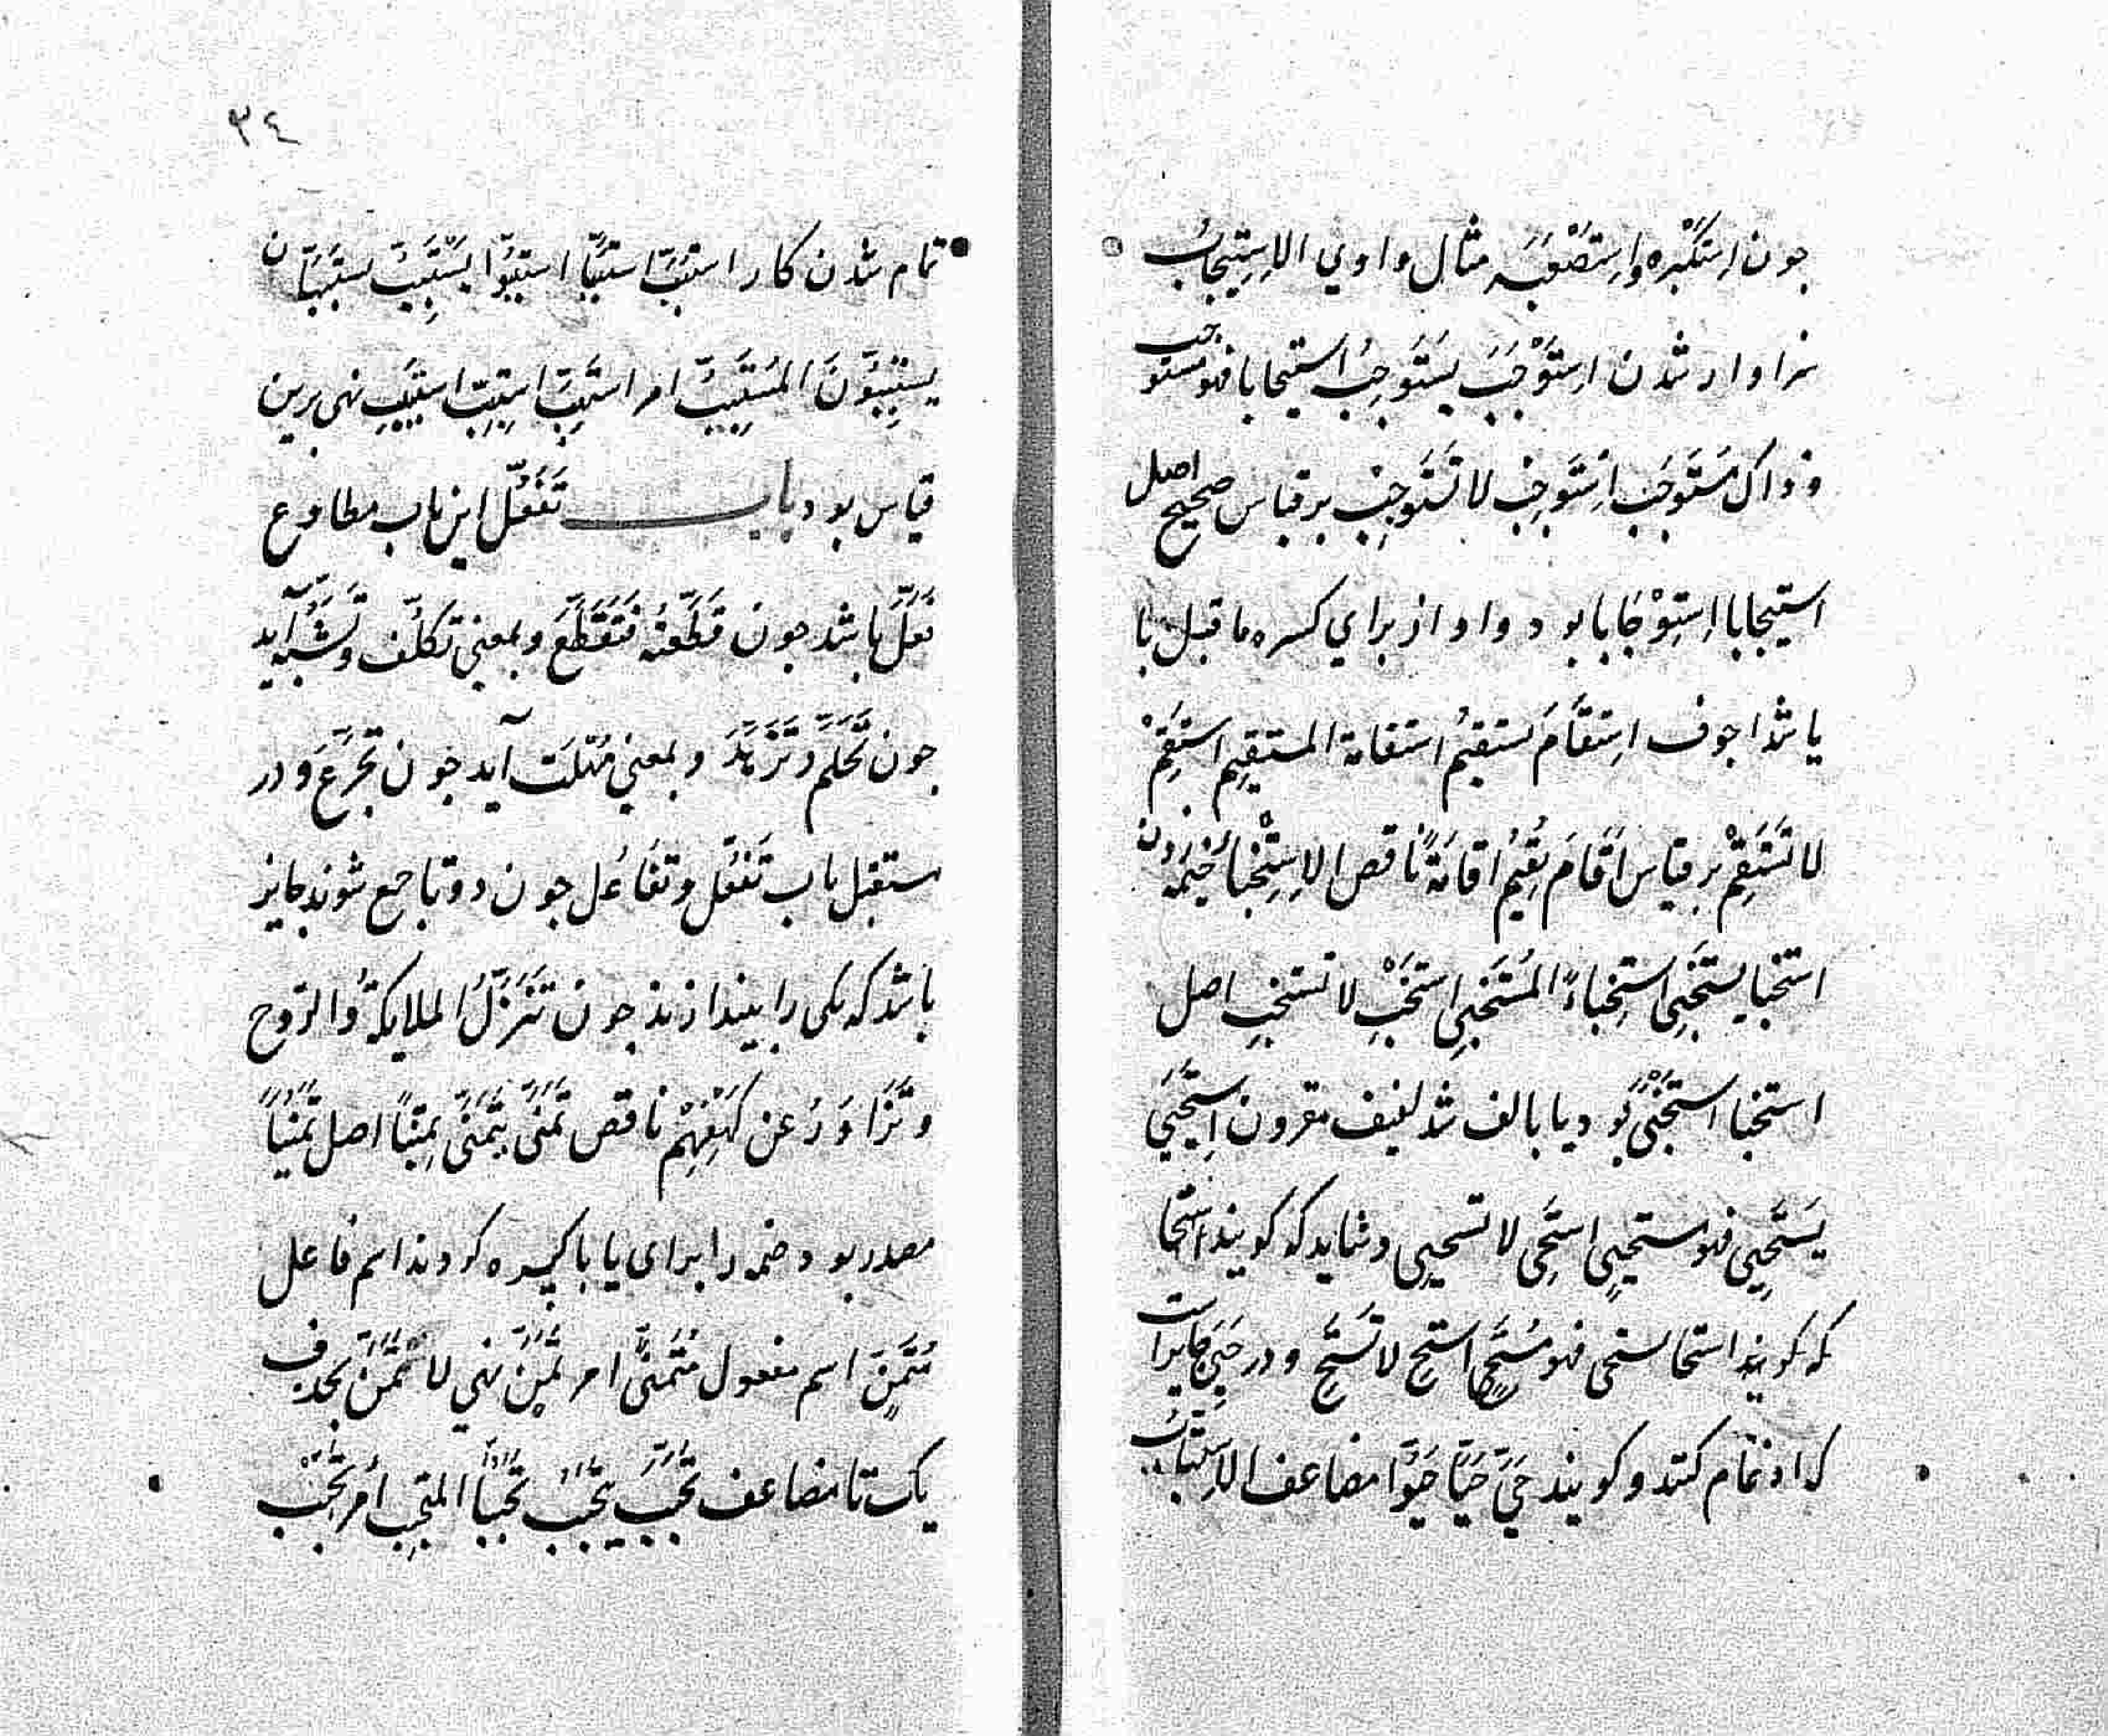 جون اِسْتَكْبَرَه واِسْتَصْعَبَه مثال واوي الاِسْتِيجابُ
سزاوار شدن اِسْتَوْجَبَ يَسْتَوْجِبُ استيجابا فهو مستوجب
وذاك مُسْتَوجَب اِسْتَوجِب لا تَسْتَوجِب بر قياس صحيح اصل
استيجابا اِسْتِوْجابا بود واو از براي كسره ما قبل با
يا شد اجوف اِستقَامَ يستقيمُ استقامة المستقيم استَقِمْ
لا تَسْتَقِمْ بر قياس اَقَامَ يُقِيْمُ اِقامَةً ناقص الاِسْتِخْباءُ خيمه زدن
استخبا يستخبِي استِخباءً المُستَخبِي استَخْبِ لا تستخبِ اصل
استخبا استَخْبَيَ بود يا بالف شد لفيف مقرون اِسْتَحْيَيَ
يَسْتَحْيِي فهو مستحيِي استَحْيِ لا تستحيِي وشايد كه كويند استحا
كه كويند استحا يستحي فهو مُسْتَحٍ استح لا تَسْتَحِ و در حَيِيَ جايز است
كه ادغام كنند و كويند حَيَّ حَيَّا حَيُّوا مضاعف الاِسْتِتْبابُ
تمام شدن كار استتبَّ استتبَّا استتبُّوا يَسْتَتِبُّ يستتبّان
يستتبُّونَ المُسْتَتِبُّ امر استَتِبَّ استَتِبِّ استَتْبِبْ نهي برين
قياس بود باب تَفَعُّل اين باب مطاوع
فَعَّلَ باشد جون قَطَّعْتُهُ فَتَقَطَّعَ و بمعني تَكَلُّف و تَشَبُّه آيد
جون تَحَلَّمَ و تَزَهَّدَ و بمعني مُهْلَت آيد جون تَجَرَّعَ و در
مستقبل باب تَفَعُّل و تفَاعُل جون دو تا جمع شوند جايز
باشد كه يكي را بيندازند جون تَنَزَّلُ الملايكةُ والرّوح
و تَزَاوَرُ عن كَهْفِهِمْ ناقص تَمَنَّى يَتَمَنَّى تَمَنِّيًا اصل تَمَنُّيًا
مصدر بود ضمه را براي يا با كسره كردند اسم فاعل
مُتَمَنٍّ اسم مفعول مُتَمَنًّى امر تَمَنَّ نهي لا تَتَمَنَّ بحذف
يك تا مضاعف تَحَبَّبَ يَتَحَبَّبُ تَحَبُّبًا المتحبِّب امر تَحَبَّبْ
٣٤